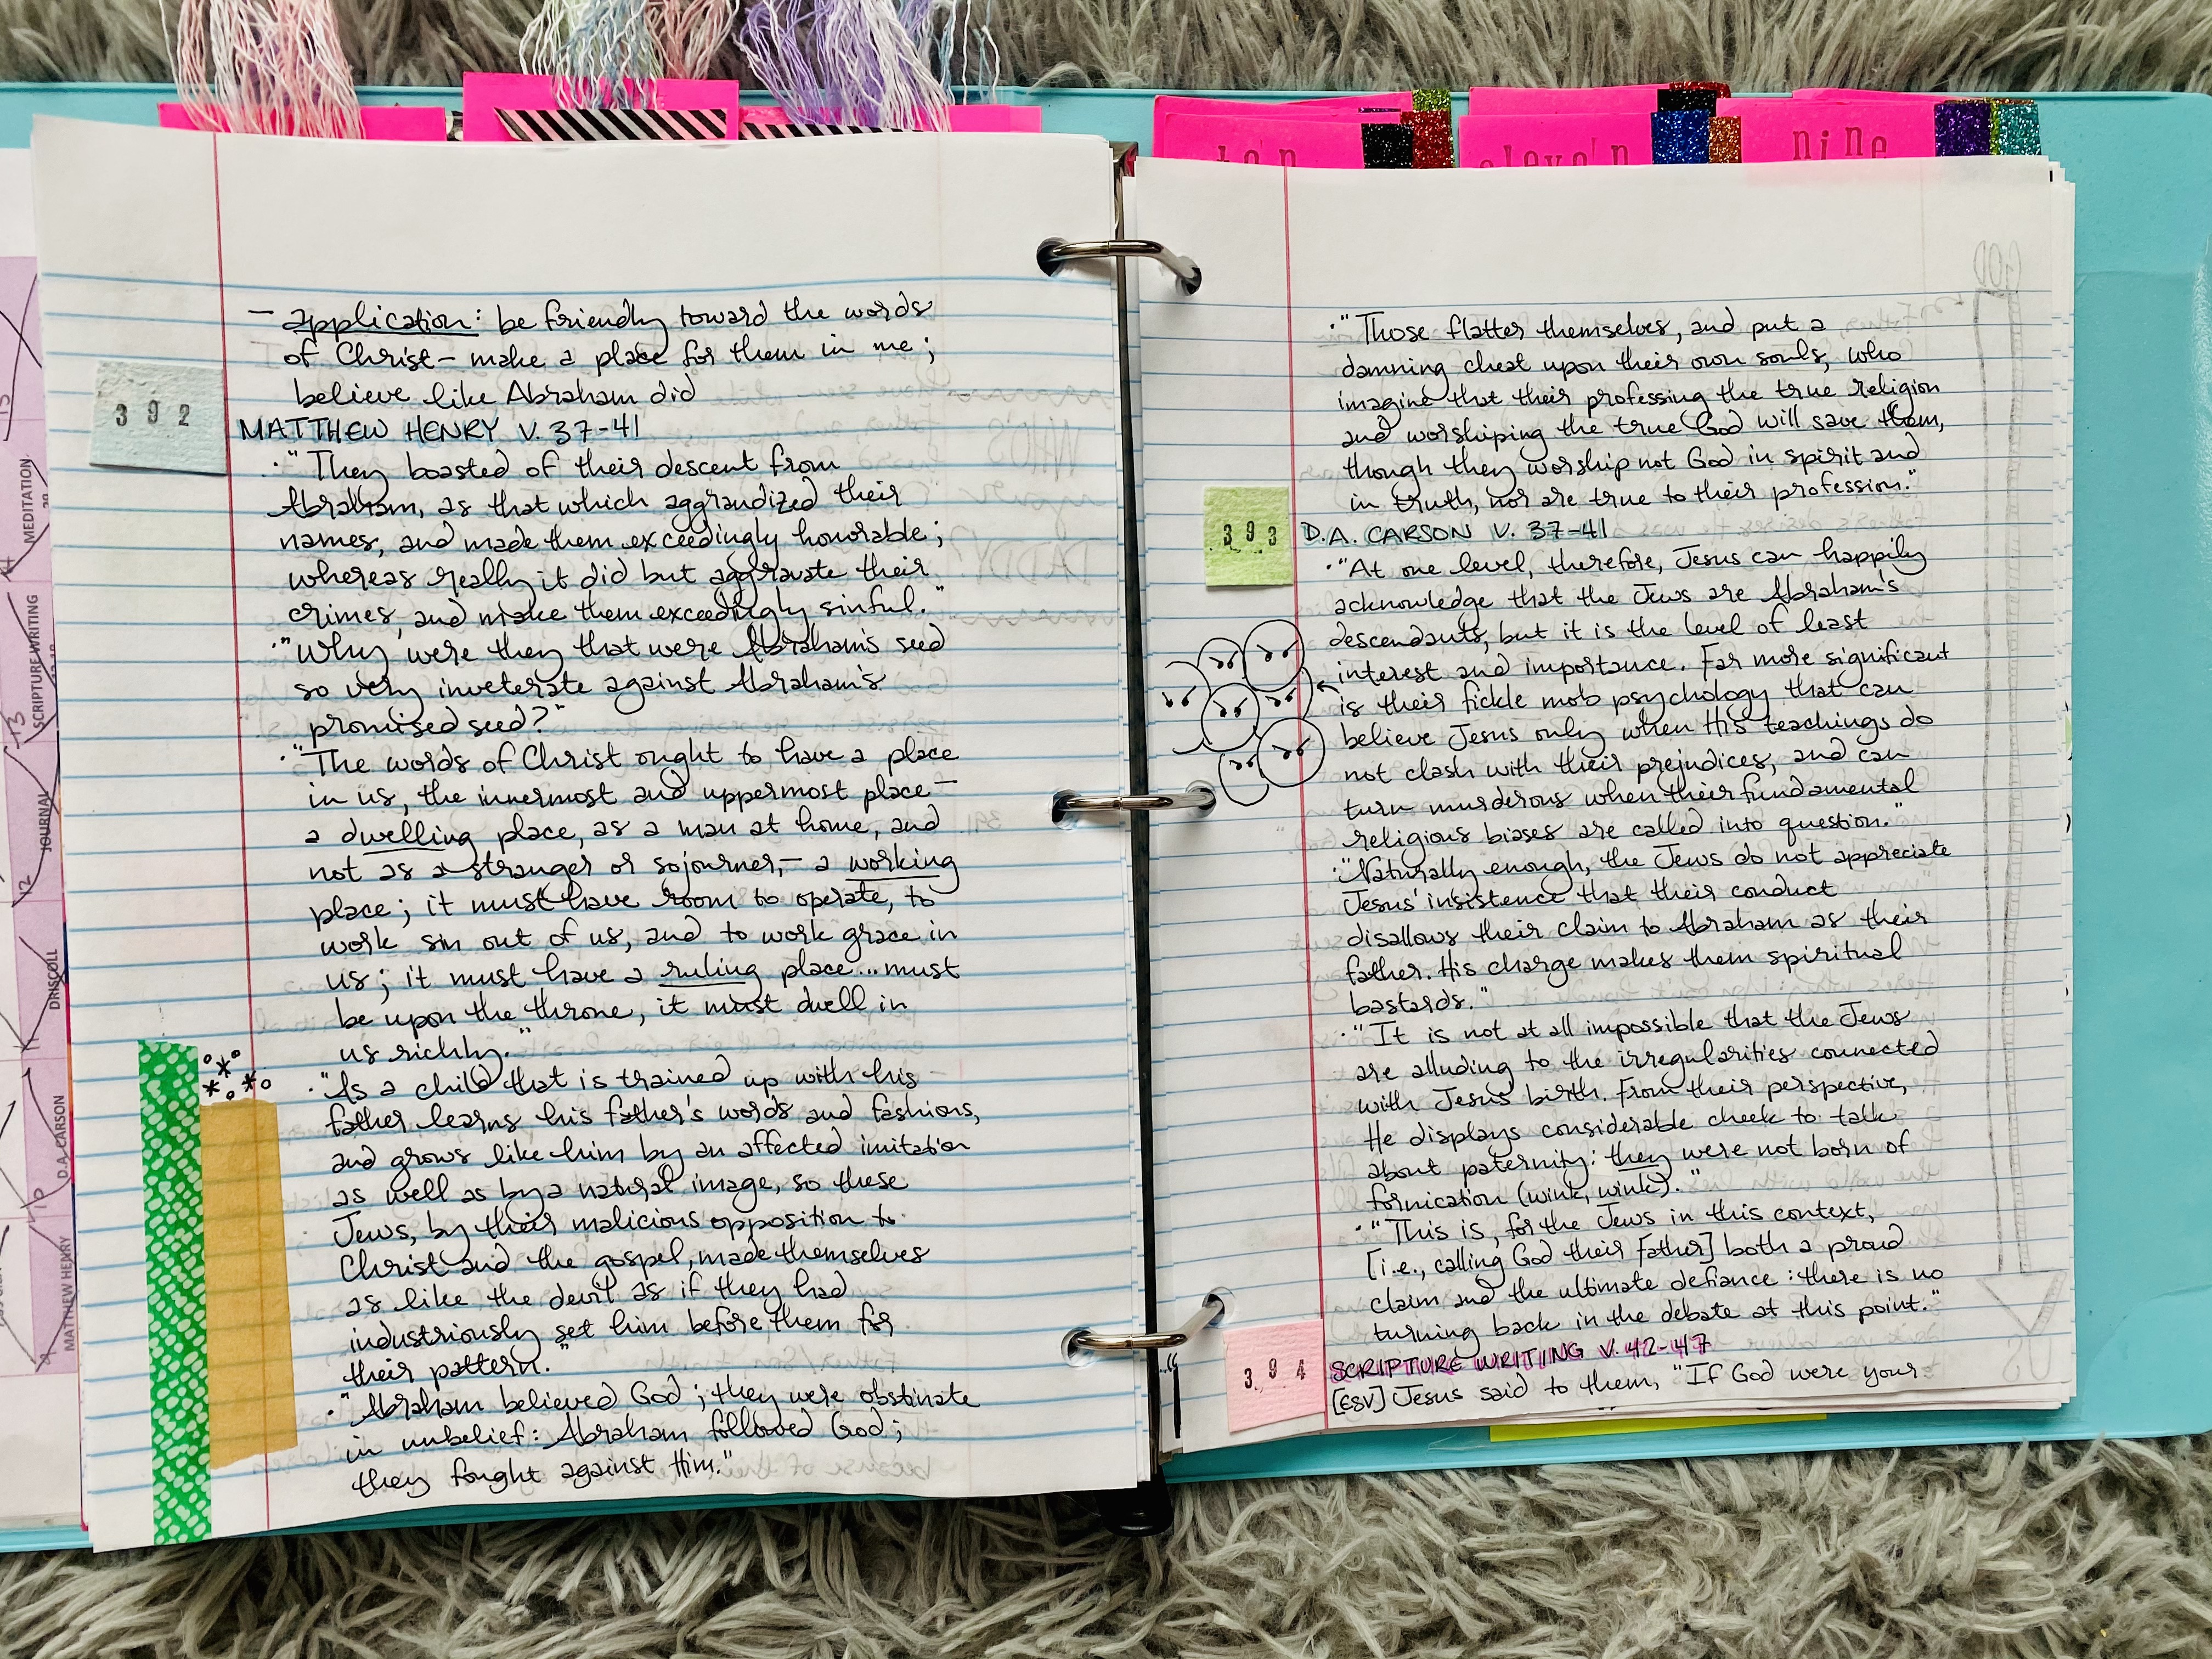 ten
eleven
nine
MEDITATION
SCRIPTURE WRITING
JOURNAL
DRISCOLL
D.A. CARSON
MATTHEW HENRY
13
12
11
10
9
– application: be friendly toward the words
of Christ – make a place for them in me;
believe like Abraham did
392
MATTHEW HENRY V. 37-41
·"They boasted of their descent from
Abraham, as that which aggrandized their
names, and made them exceedingly honorable;
whereas really it did but aggravate their
crimes, and make them exceedingly sinful."
·"Why were they that were Abraham's seed
so very inveterate against Abraham's
promised seed?"
·"The words of Christ ought to have a place
in us, the innermost and uppermost place –
a dwelling place, as a man at home, and
not as a stranger or sojourner, – a working
place; it must have room to operate, to
work sin out of us, and to work grace in
us; it must have a ruling place...must
be upon the throne, it must dwell in
us richly."
·"As a child that is trained up with his
father learns his father's words and fashions,
and grows like him by an affected imitation
as well as by a natural image, so these
Jews, by their malicious opposition to
Christ and the gospel, made themselves
as like the devil as if they had
industriously set him before them for
their pattern."
·"Abraham believed God; they were obstinate
in unbelief: Abraham followed God;
they fought against Him."
·"Those flatter themselves, and put a
damning cheat upon their own souls, who
imagine that their professing the true religion
and worshiping the true God will save them,
though they worship not God in spirit and
in truth, nor are true to their profession."
393
D.A. CARSON V. 37-41
·"At one level, therefore, Jesus can happily
acknowledge that the Jews are Abraham's
descendants, but it is the level of least
interest and importance. Far more significant
is their fickle mob psychology that can
believe Jesus only when His teachings do
not clash with their prejudices, and can
turn murderous when their fundamental
religious biases are called into question."
·"Naturally enough, the Jews do not appreciate
Jesus' insistence that their conduct
disallows their claim to Abraham as their
father. His charge makes them spiritual
bastards."
·"It is not at all impossible that the Jews
are alluding to the irregularities connected
with Jesus' birth. From their perspective,
He displays considerable cheek to talk
about paternity: they were not born of
fornication (wink, wink)."
·"This is, for the Jews in this context,
[i.e., calling God their Father] both a proud
claim and the ultimate defiance: there is no
turning back in the debate at this point."
394
SCRIPTURE WRITING V. 42-47
[ESV] Jesus said to them, "If God were your